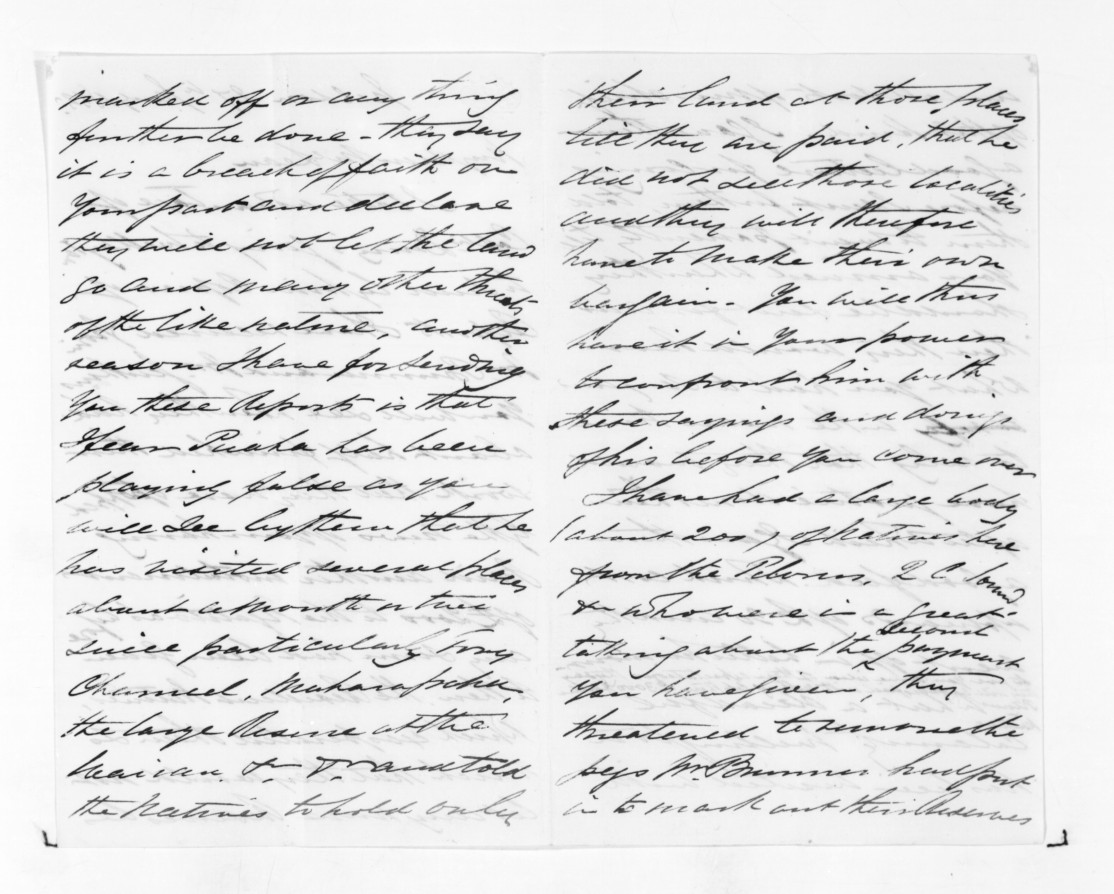 marked off or any thing
further be done - they say
it is a breach of faith on
your part and declare
they will not let the land
go and many other threats
of the like nature, another
reason I have for sending
you these Reports is that
I fear Puaha has been
playing false as you
will see by them that he
has visited several places
about a month or two
since particularly Tory
Channel, Mahara
the large Reserve at the
Waitau &c &c and told
the Natives to hold only
their land at those places
till they are paid, that he
did not sell those localities
and they will therefore
have to make their own
bargain - You will thus
have it in your power
to confront him with
these sayings and doings
of his before you come over
I have had a large body
(about 200) of Natives here
from the Pelorus, Q C Sound
&c who were in a great
talking about the second payment
you have given, they
threatened to remove the
pegs Mr Brunner had put
in to mark out their Reserves